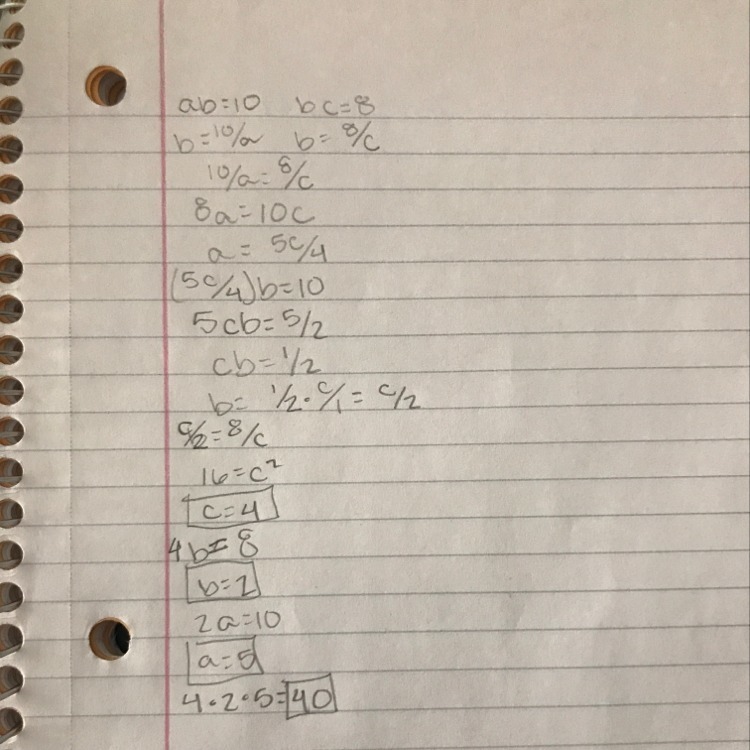 ab=10 bc=8
b=10/a b=8/c
10/a=8/c
8a=10c
a=5c/4
(5c/4)b=10
5cb=5/2
cb=1/2
b=1/2·c/1=c/2
c/2=8/c
16=c²
c=4
4b=8
b=2
2a=10
a=5
4·2·5=40